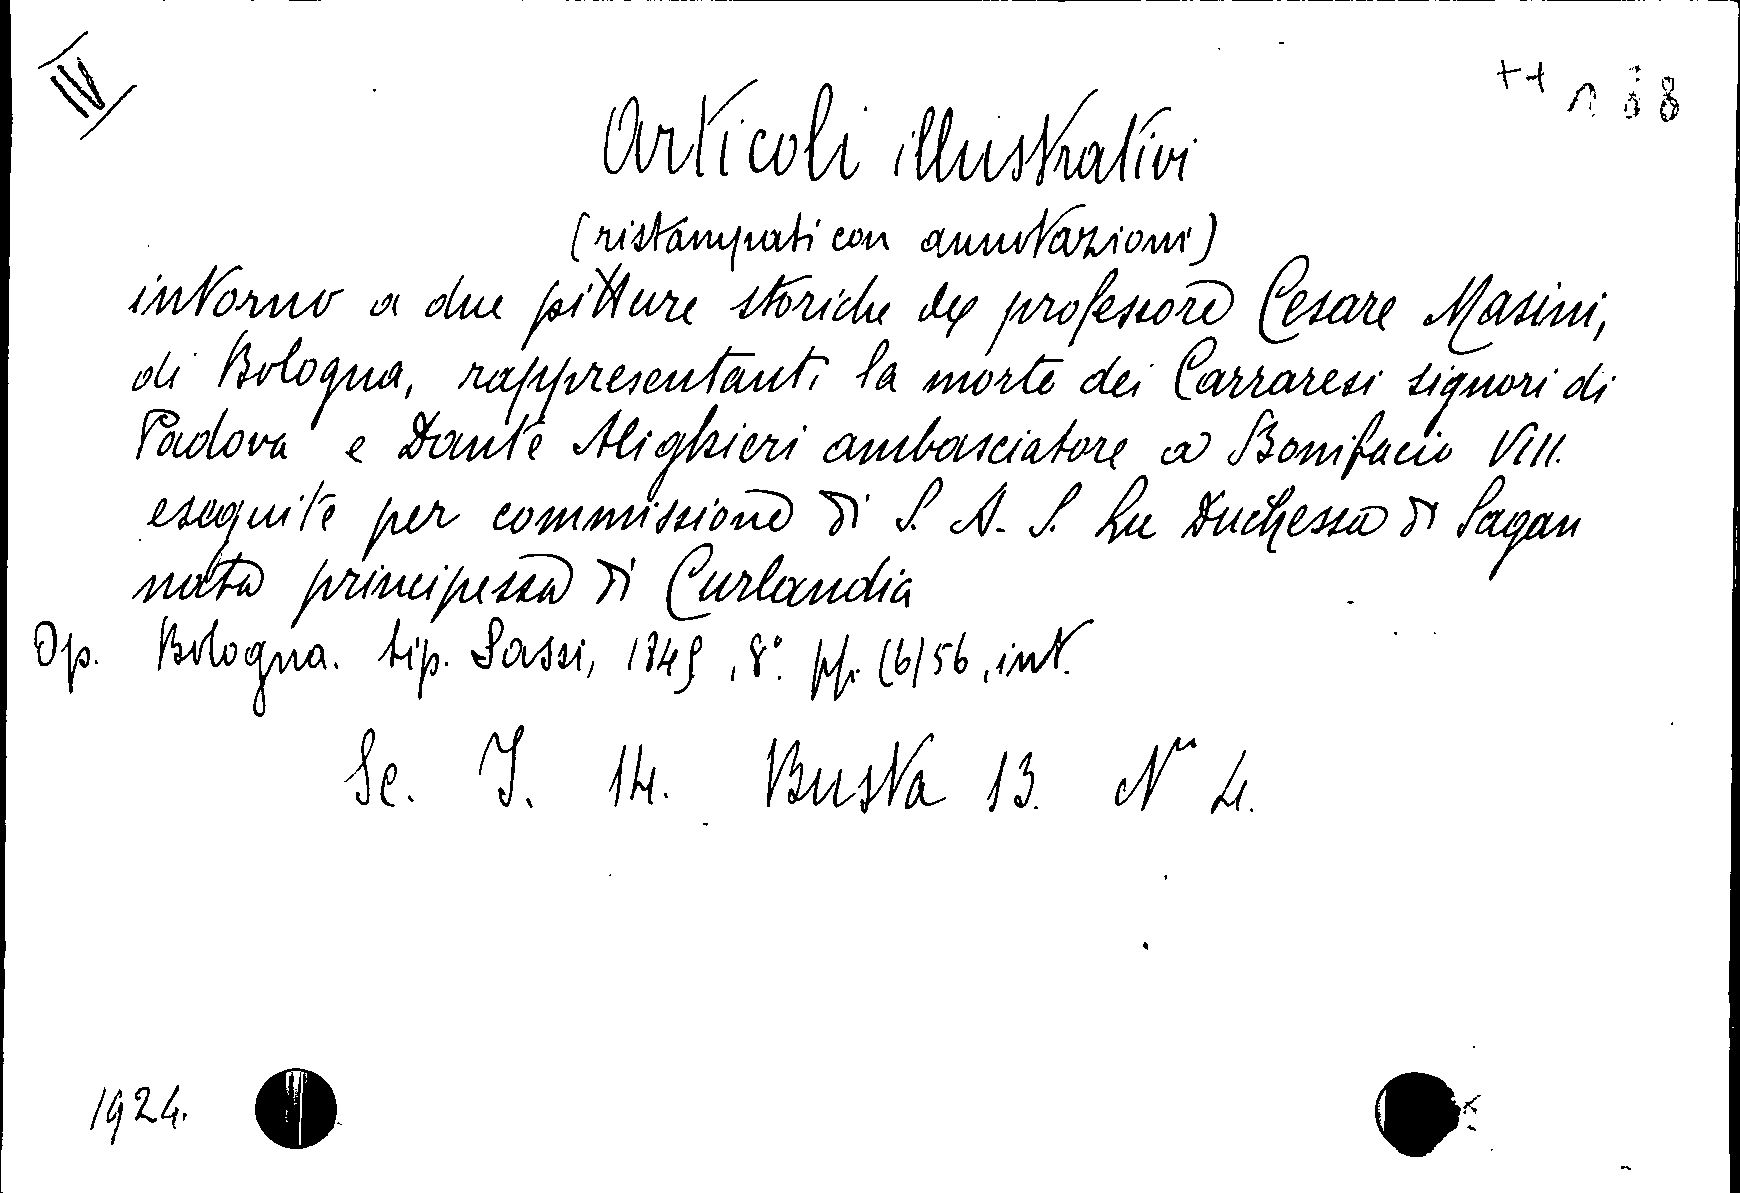 IV
Articoli illustrativi
(ristampati con annotazioni)
intorno a due pitture storiche del professore Cesare Masini,
di Bologna, rappresentanti la morte dei Carraresi signori di
Padova e Dante Alighieri ambasciatore a Bonifacio VIII.
eseguite per commissione di S. A. S. La Duchessa di Sagan
nata principessa di Curlandia
Op. Bologna. tip. Sassi, 1849, 8° pp. (6) 56, int.
Sc. I. 14. Busta 13. N° 4.
1924.